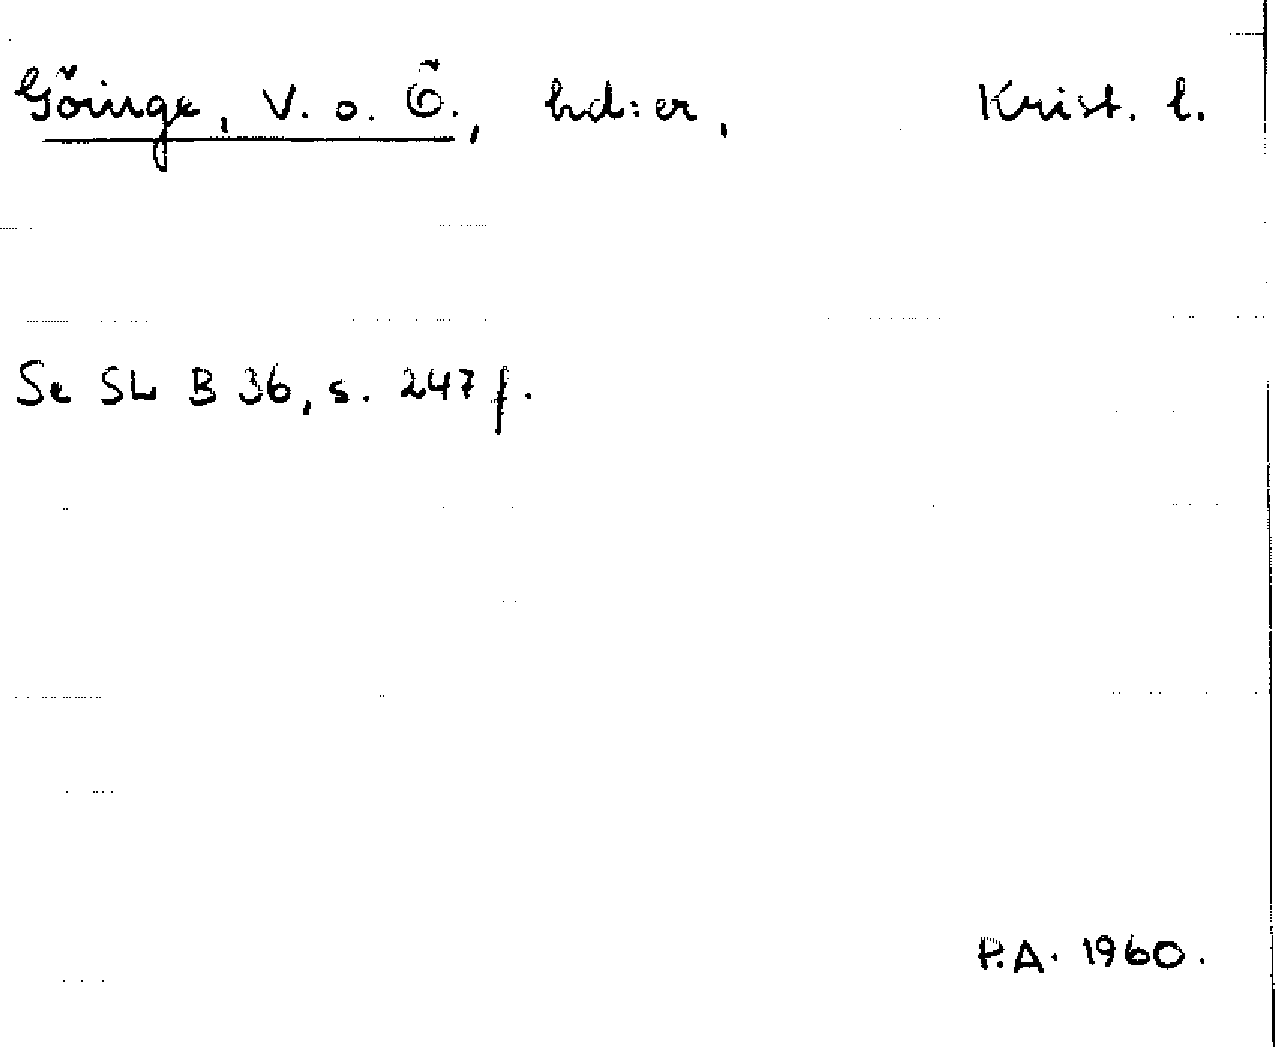 Göinge, V. o. Ö., hd:er, Krist. l.
Se SL B 36, s. 247 f.
P.A. 1960.